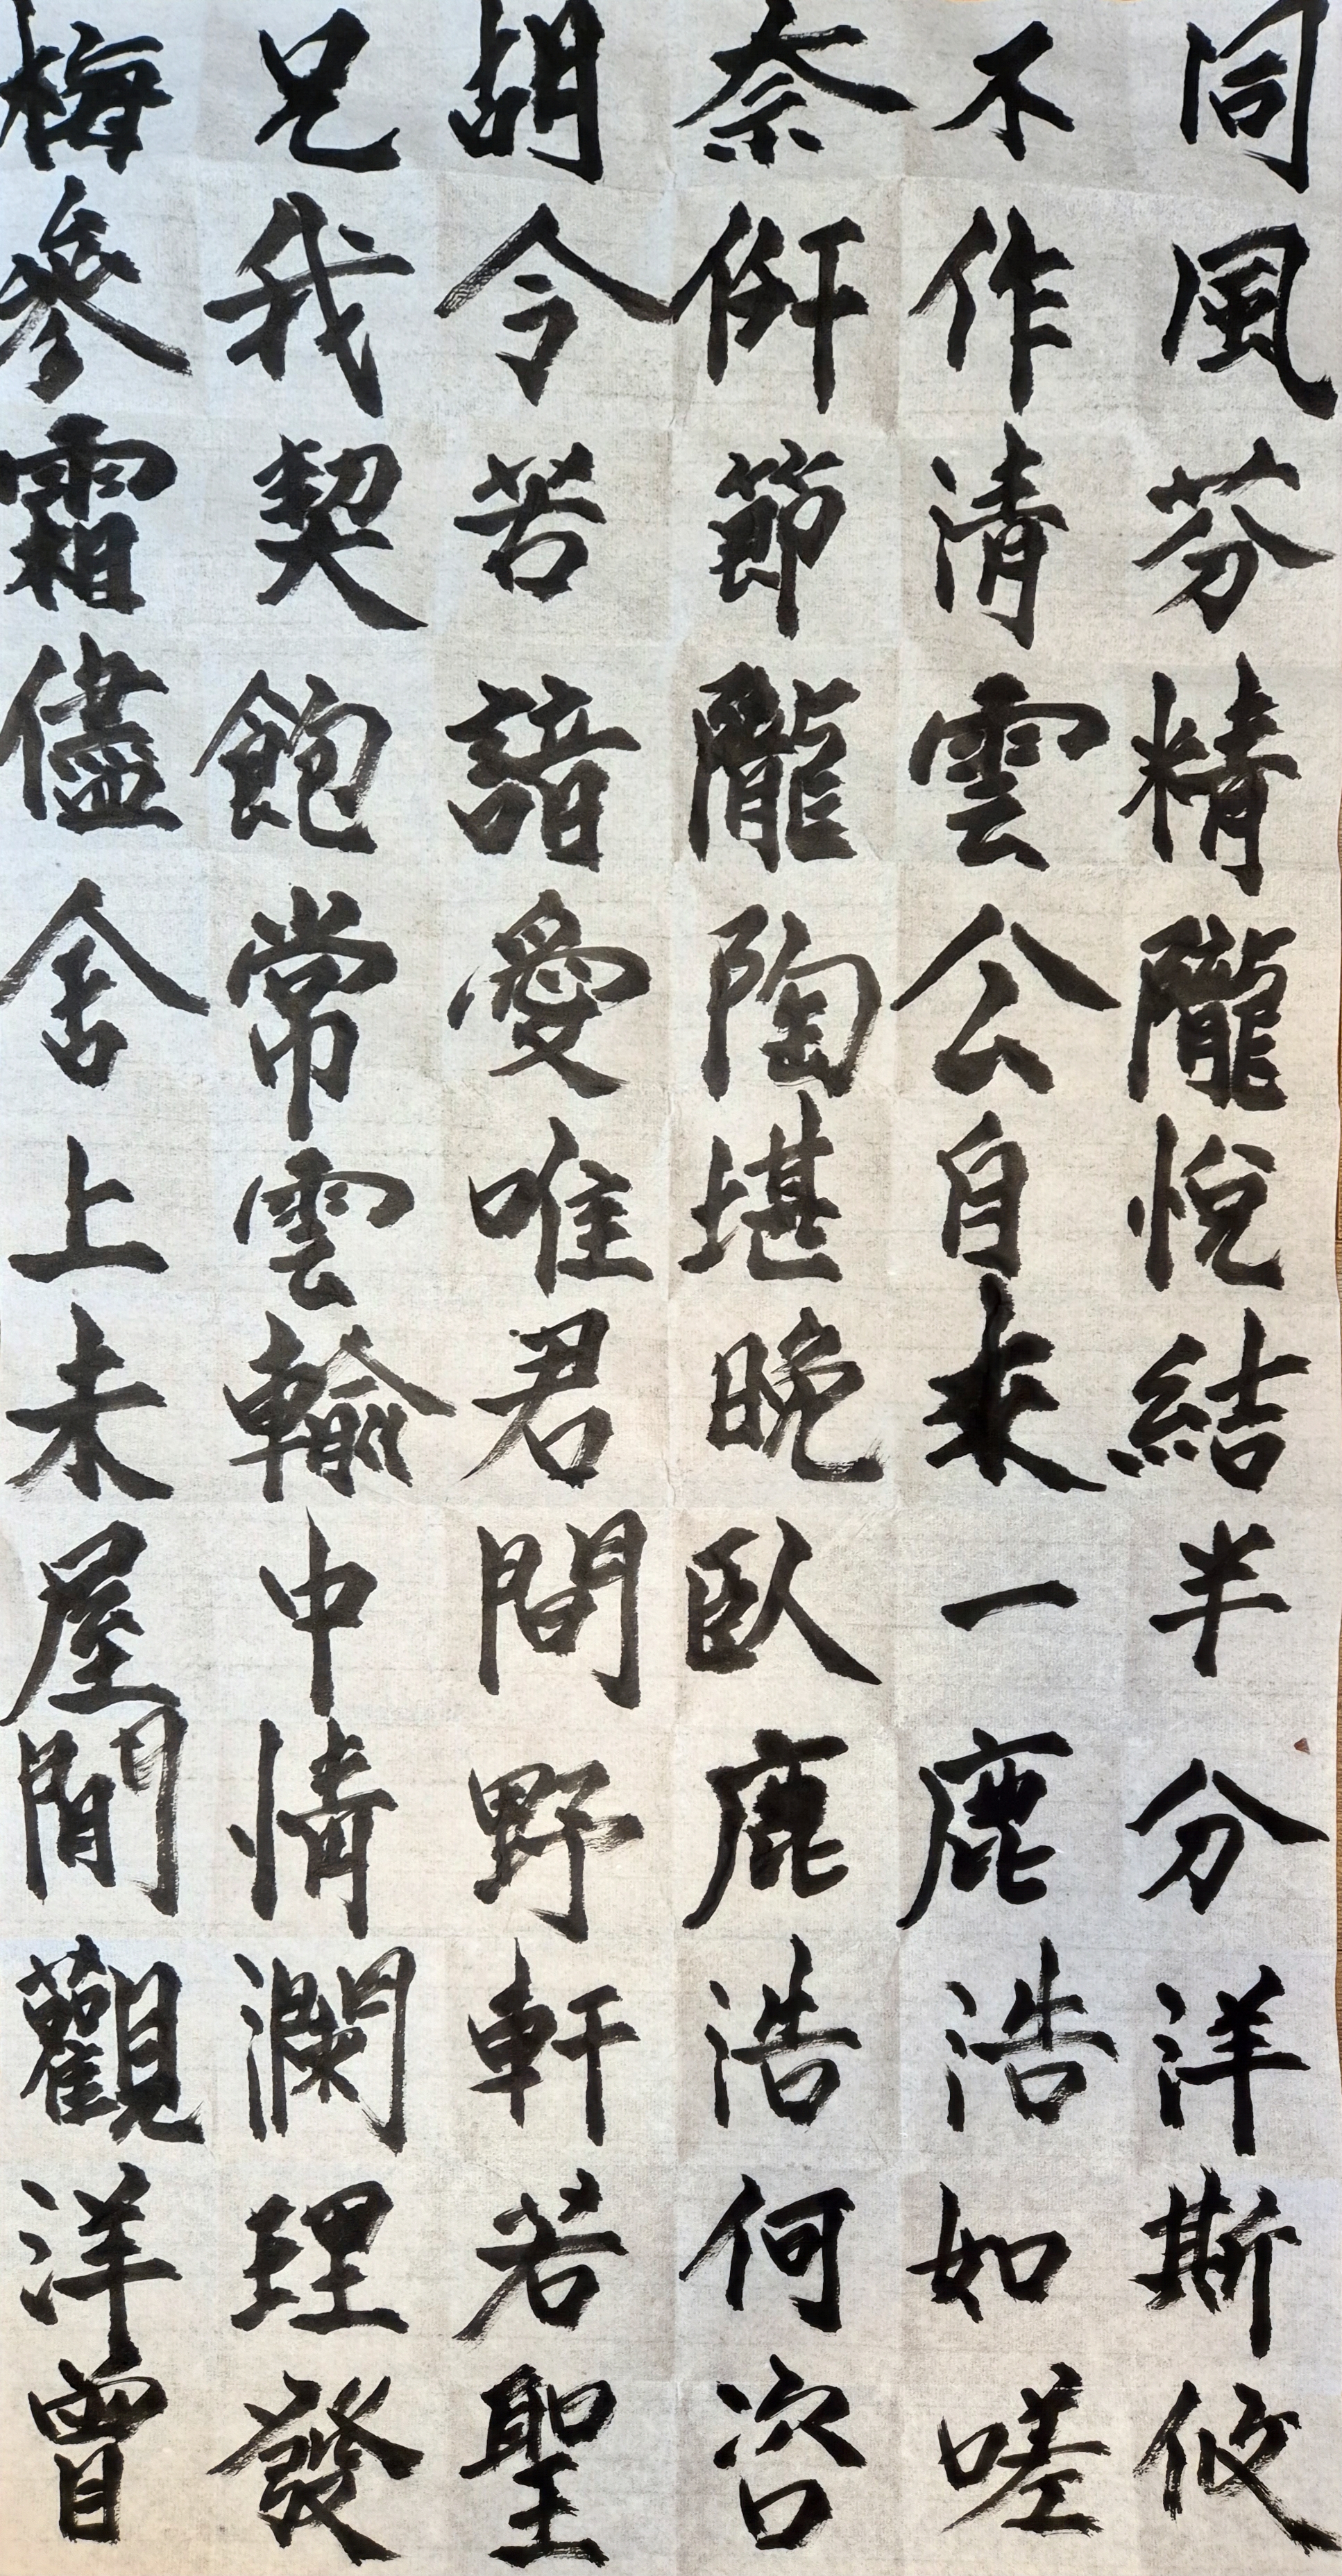 同風芬精隴悅結半分洋斯攸
不作清雲公自来一鹿浩如嗟
奈節隴陶堪晚臥鹿浩何咨
胡令苦諳愛唯君間野軒若聖
兄我契飽常雲輸中情瀾理發
梅參霜儘舍上未屋閒觀洋胃